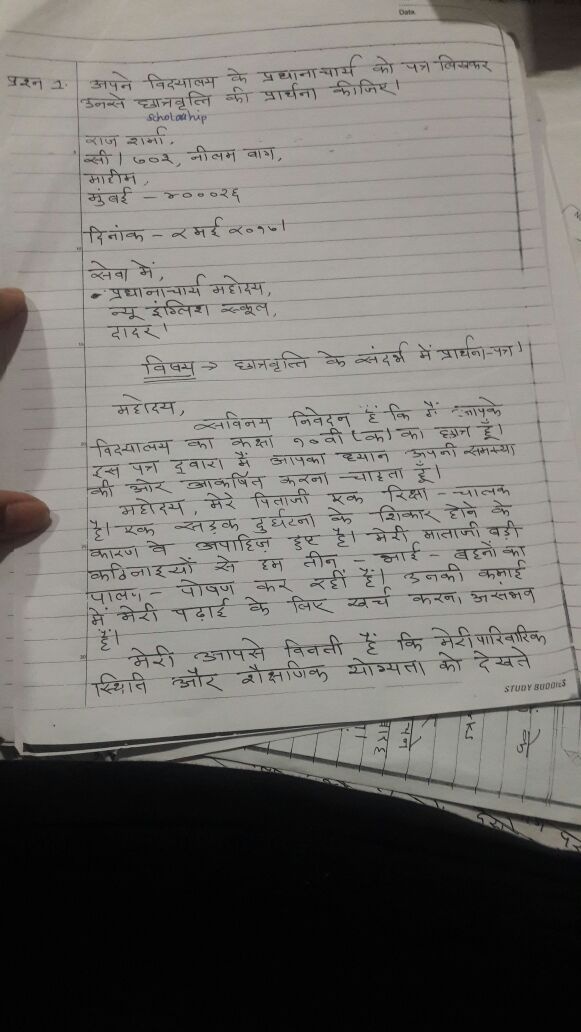 Date
प्रश्न 1. अपने विद्यालय के प्रधानाचार्य को पत्र लिखकर
उनसे छात्रवृत्ति की प्रार्थना कीजिए।
scholarship
राज शर्मा,
सी / ७०२, नीलम बाग,
माहीम,
मुंबई – ४०००२६
दिनांक – २ मई २०१७।
सेवा में,
प्रधानाचार्य महोदय,
न्यू इंग्लिश स्कूल,
दादर।
विषय → छात्रवृत्ति के संदर्भ में प्रार्थना-पत्र।
महोदय,
सविनय निवेदन हैं कि मैं आपके
विद्यालय का कक्षा १०वी (क) का छात्र हूँ।
इस पत्र द्वारा मैं आपका ध्यान अपनी समस्या
की ओर आकर्षित करना चाहता हूँ।
महोदय, मेरे पिताजी एक रिक्षा – चालक
है। एक सड़क दुर्घटना के शिकार होने के
कारण वे अपाहिज हुए है। मेरी माताजी बड़ी
कठिनाइयों से हम तीन – भाई – बहनों का
पालन – पोषण कर रहीं हैं। उनकी कमाई
में मेरी पढ़ाई के लिए खर्च करना असंभव
हैं।
मेरी आपसे विनती हैं कि मेरी पारिवारिक
स्थिति और शैक्षणिक योग्यता को देखते
STUDY BUDDIES